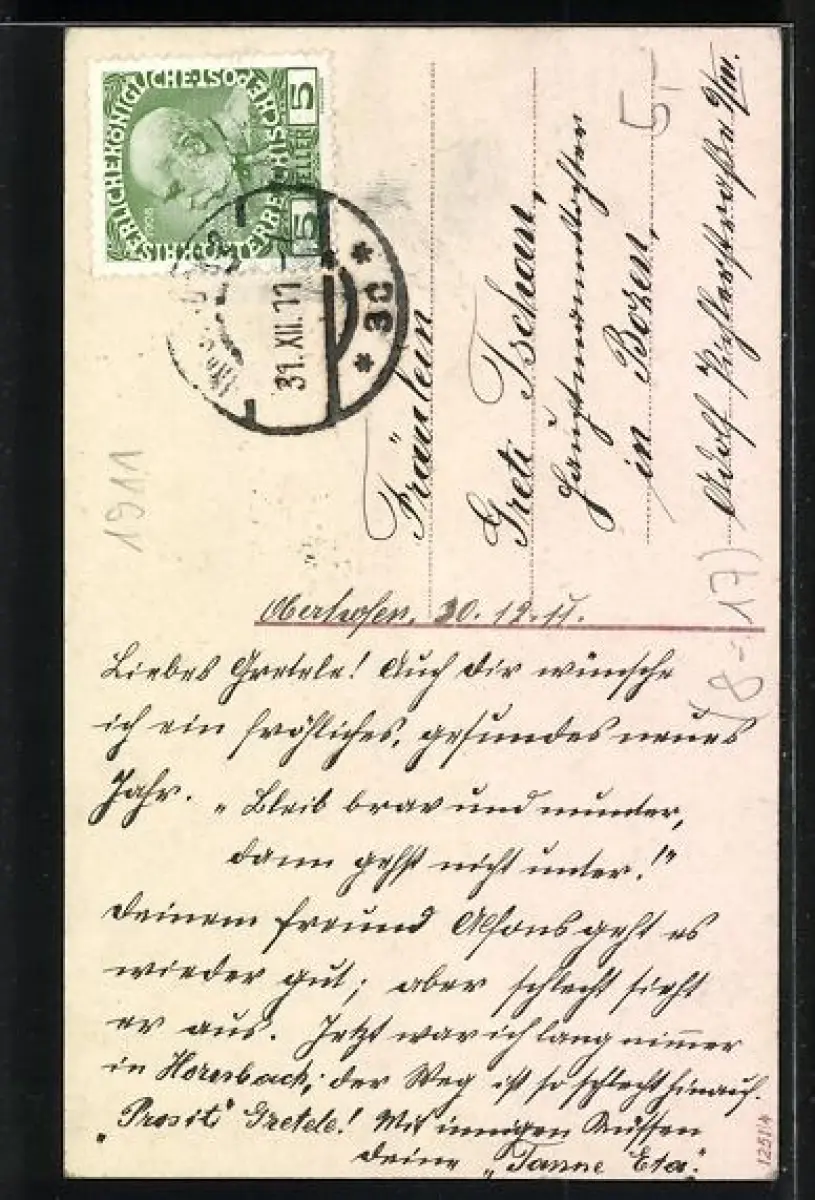 KAISERLICHEKÖNIGLICHE ÖSTERREICHISCHE POST
5 HELLER 5
1908
31.XII.11
* 3c *
5,-
1911
Fräulein
Greti Tschan,
Hauptmannstochter
in Bozen,
Adolf Pichlerstraße 9/III.
(8-17)
Oberhofen, 30.12.11.
Liebes Gretele! Auch dir wünsche
ich ein fröhliches, gesundes neues
Jahr. „Bleib brav und munter,
dann gehst nicht unter!"
Deinem Freund Alfons geht es
wieder gut; aber schlecht sieht
er aus. Jetzt war ich lang nimmer
in der Weg ist so schlecht hinauf.
„Prosit" Gretele! Mit innigen Küssen
deine „Tanne Eta".
12514